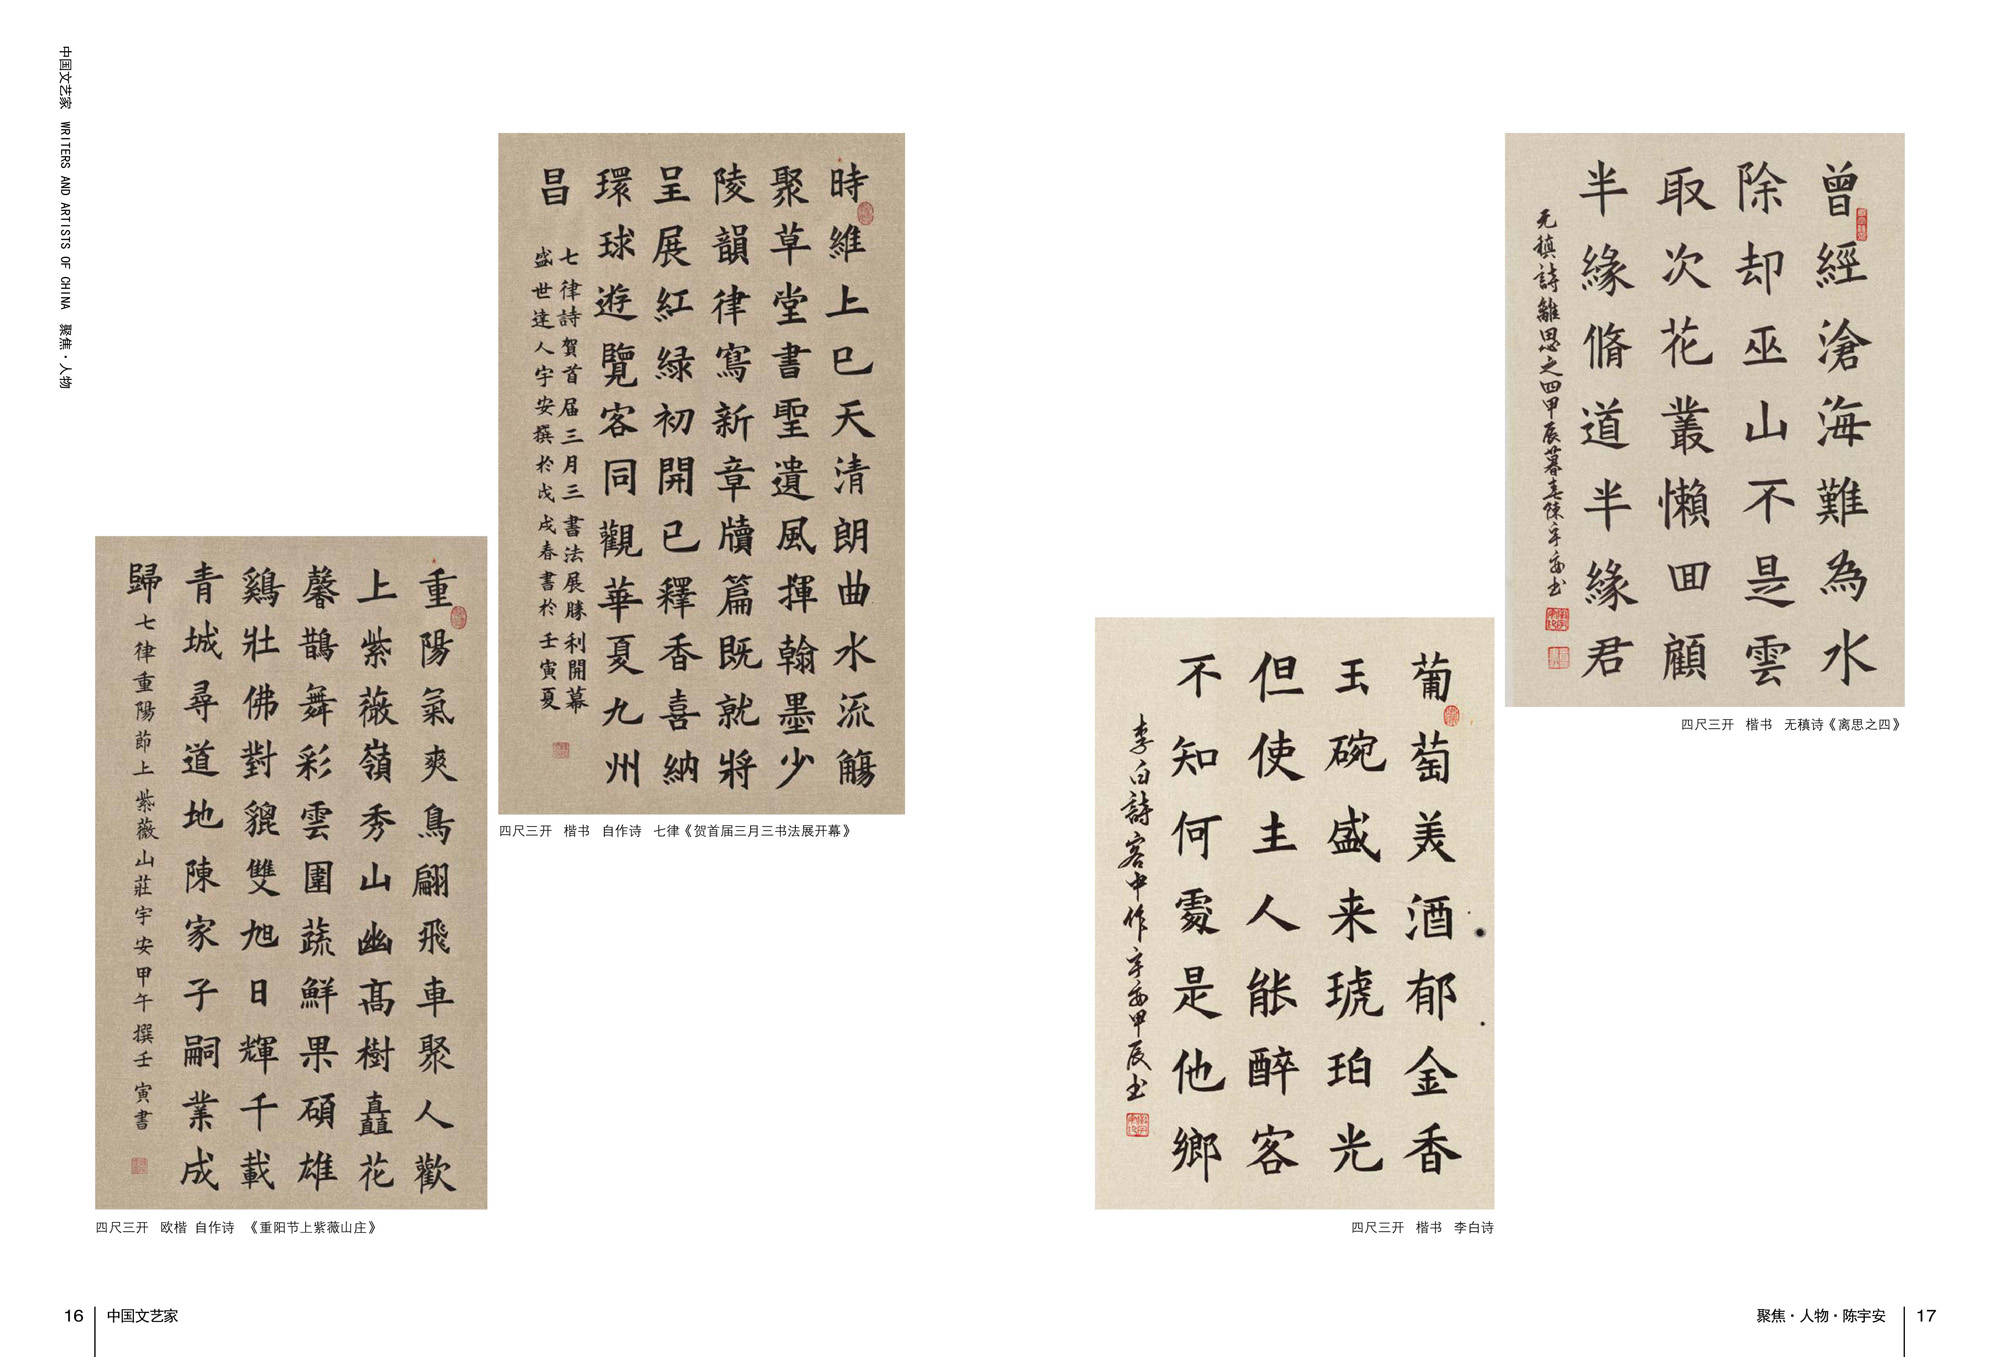 中国文艺家 WRITERS AND ARTISTS OF CHINA 聚焦·人物
時維上巳天清朗曲水流觴
聚草堂書聖遺風揮翰墨少
陵韻律寫新章牘篇既就將
呈展紅緑初開已釋香喜納
環球遊覽客同觀華夏九州
昌
七律詩賀首届三月三書法展勝利開幕
盛世達人宇安撰於戊戌春書於壬寅夏
四尺三开 楷书 自作诗 七律《贺首届三月三书法展开幕》
重陽氣爽鳥翩飛車聚人歡
上紫薇嶺秀山幽高樹矗花
馨鵲舞彩雲圍蔬鮮果碩雄
鷄壯佛對貔雙旭日輝千載
青城尋道地陳家子嗣業成
歸
七律重陽節上紫薇山莊宇安甲午撰壬寅書
四尺三开 欧楷 自作诗 《重阳节上紫薇山庄》
16 中国文艺家
曾經滄海難為水
除却巫山不是雲
取次花叢懶回顧
半緣脩道半緣君
元稹詩離思之四甲辰暮春陳宇安书
四尺三开 楷书 无稹诗《离思之四》
葡萄美酒郁金香
玉碗盛来琥珀光
但使主人能醉客
不知何處是他鄉
李白詩客中作宇安甲辰书
四尺三开 楷书 李白诗
聚焦·人物·陈宇安 17